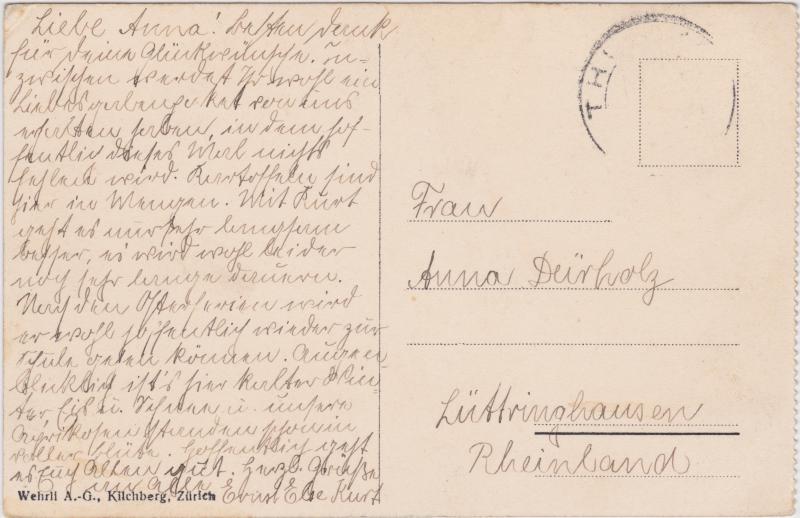 Liebe Anna! Besten Dank
für deine Glückwünsche. In-
zwischen werdet Ihr wohl ein
Liebesgabenpaket von uns
erhalten haben, in dem hof-
fentlich dieses Mal nichts
fehlen wird. Kartoffeln sind
hier in Mengen. Mit Kurt
geht es nur sehr langsam
besser, es wird wohl leider
noch sehr lange dauern.
Nach den Osterferien wird
er wohl hoffentlich wieder zur
Schule gehen können. Augen-
blicklich ist's hier kalter Win-
ter, Eis u. Schnee u. unsere
Aprikosen standen schon in
voller Blüte. Hoffentlich geht
es Euch Allen gut. Herzl. Grüsse
an alle Ernst Else Kurt
Wehrli A.-G., Kilchberg, Zürich
TH
Frau
Anna Dürholz
Lüttringhausen
Rheinland